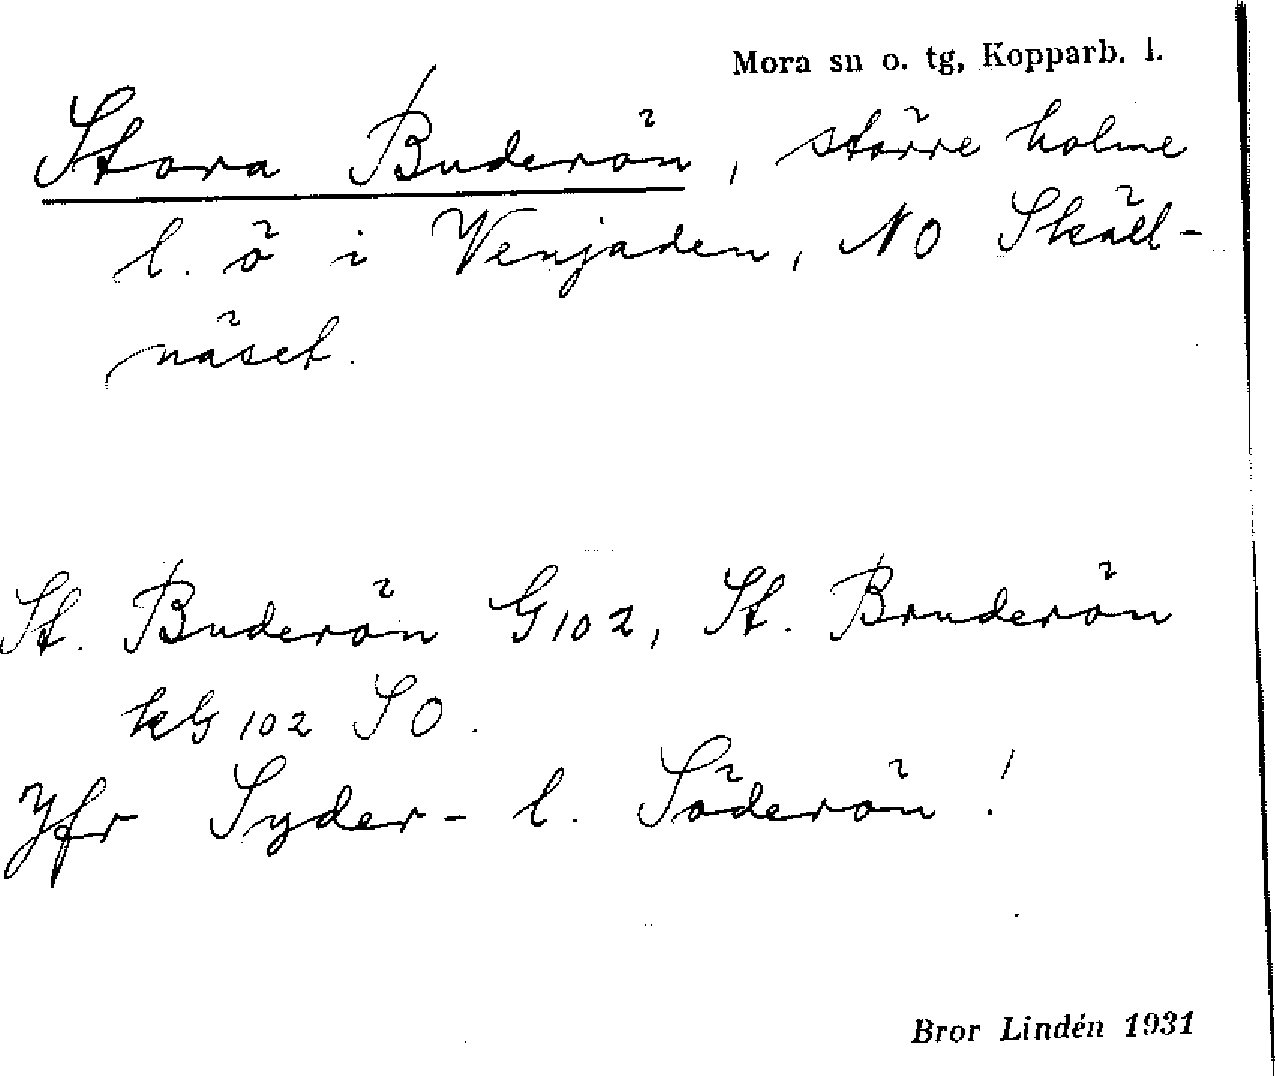 Mora sn o. tg, Kopparb. l.
Stora Buderön, större holme
l. ö i Venjaden, NO Skäll-
näset.
St. Buderön G 102, St. Bruderön
kG 102 SO.
Jfr Syder- l. Söderön!
Bror Lindén 1931